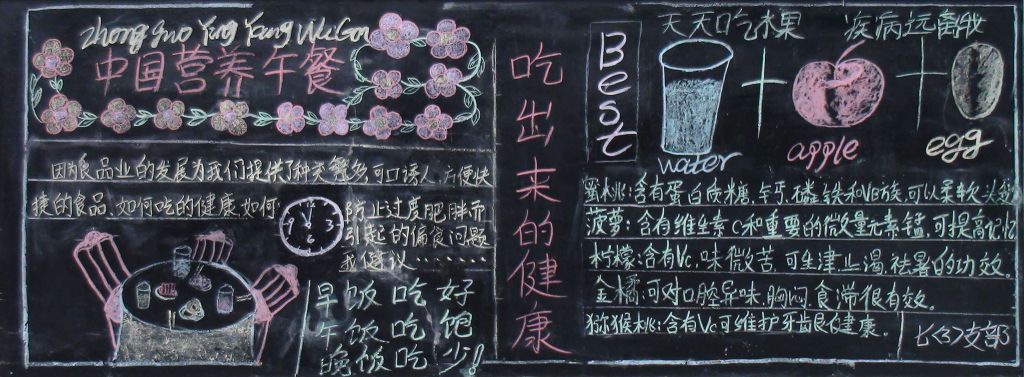 zhong guo Ying Yang Wu Can
中国营养午餐
因为食品业的发展为我们提供了种类繁多可口诱人、方便快
捷的食品、如何吃的健康、如何
防止过度肥胖而
引起的偏食问题
我建议……
9 3
早饭吃好
午饭吃饱
晚饭吃少!!
吃出来的健康
Best
天天吃水果 疾病远离我
water
apple
egg
蜜桃:含有蛋白质、糖、钙、磷、铁和VB族,可以柔软头发
菠萝:含有维生素C和重要的微量元素锰,可提高记忆
柠檬:含有Vc,味微苦,可生津止渴,祛暑的功效。
金橘:可对口腔异味、胸闷、食滞很有效。
猕猴桃:含有Vc可维护牙龈健康。
七(3)支部